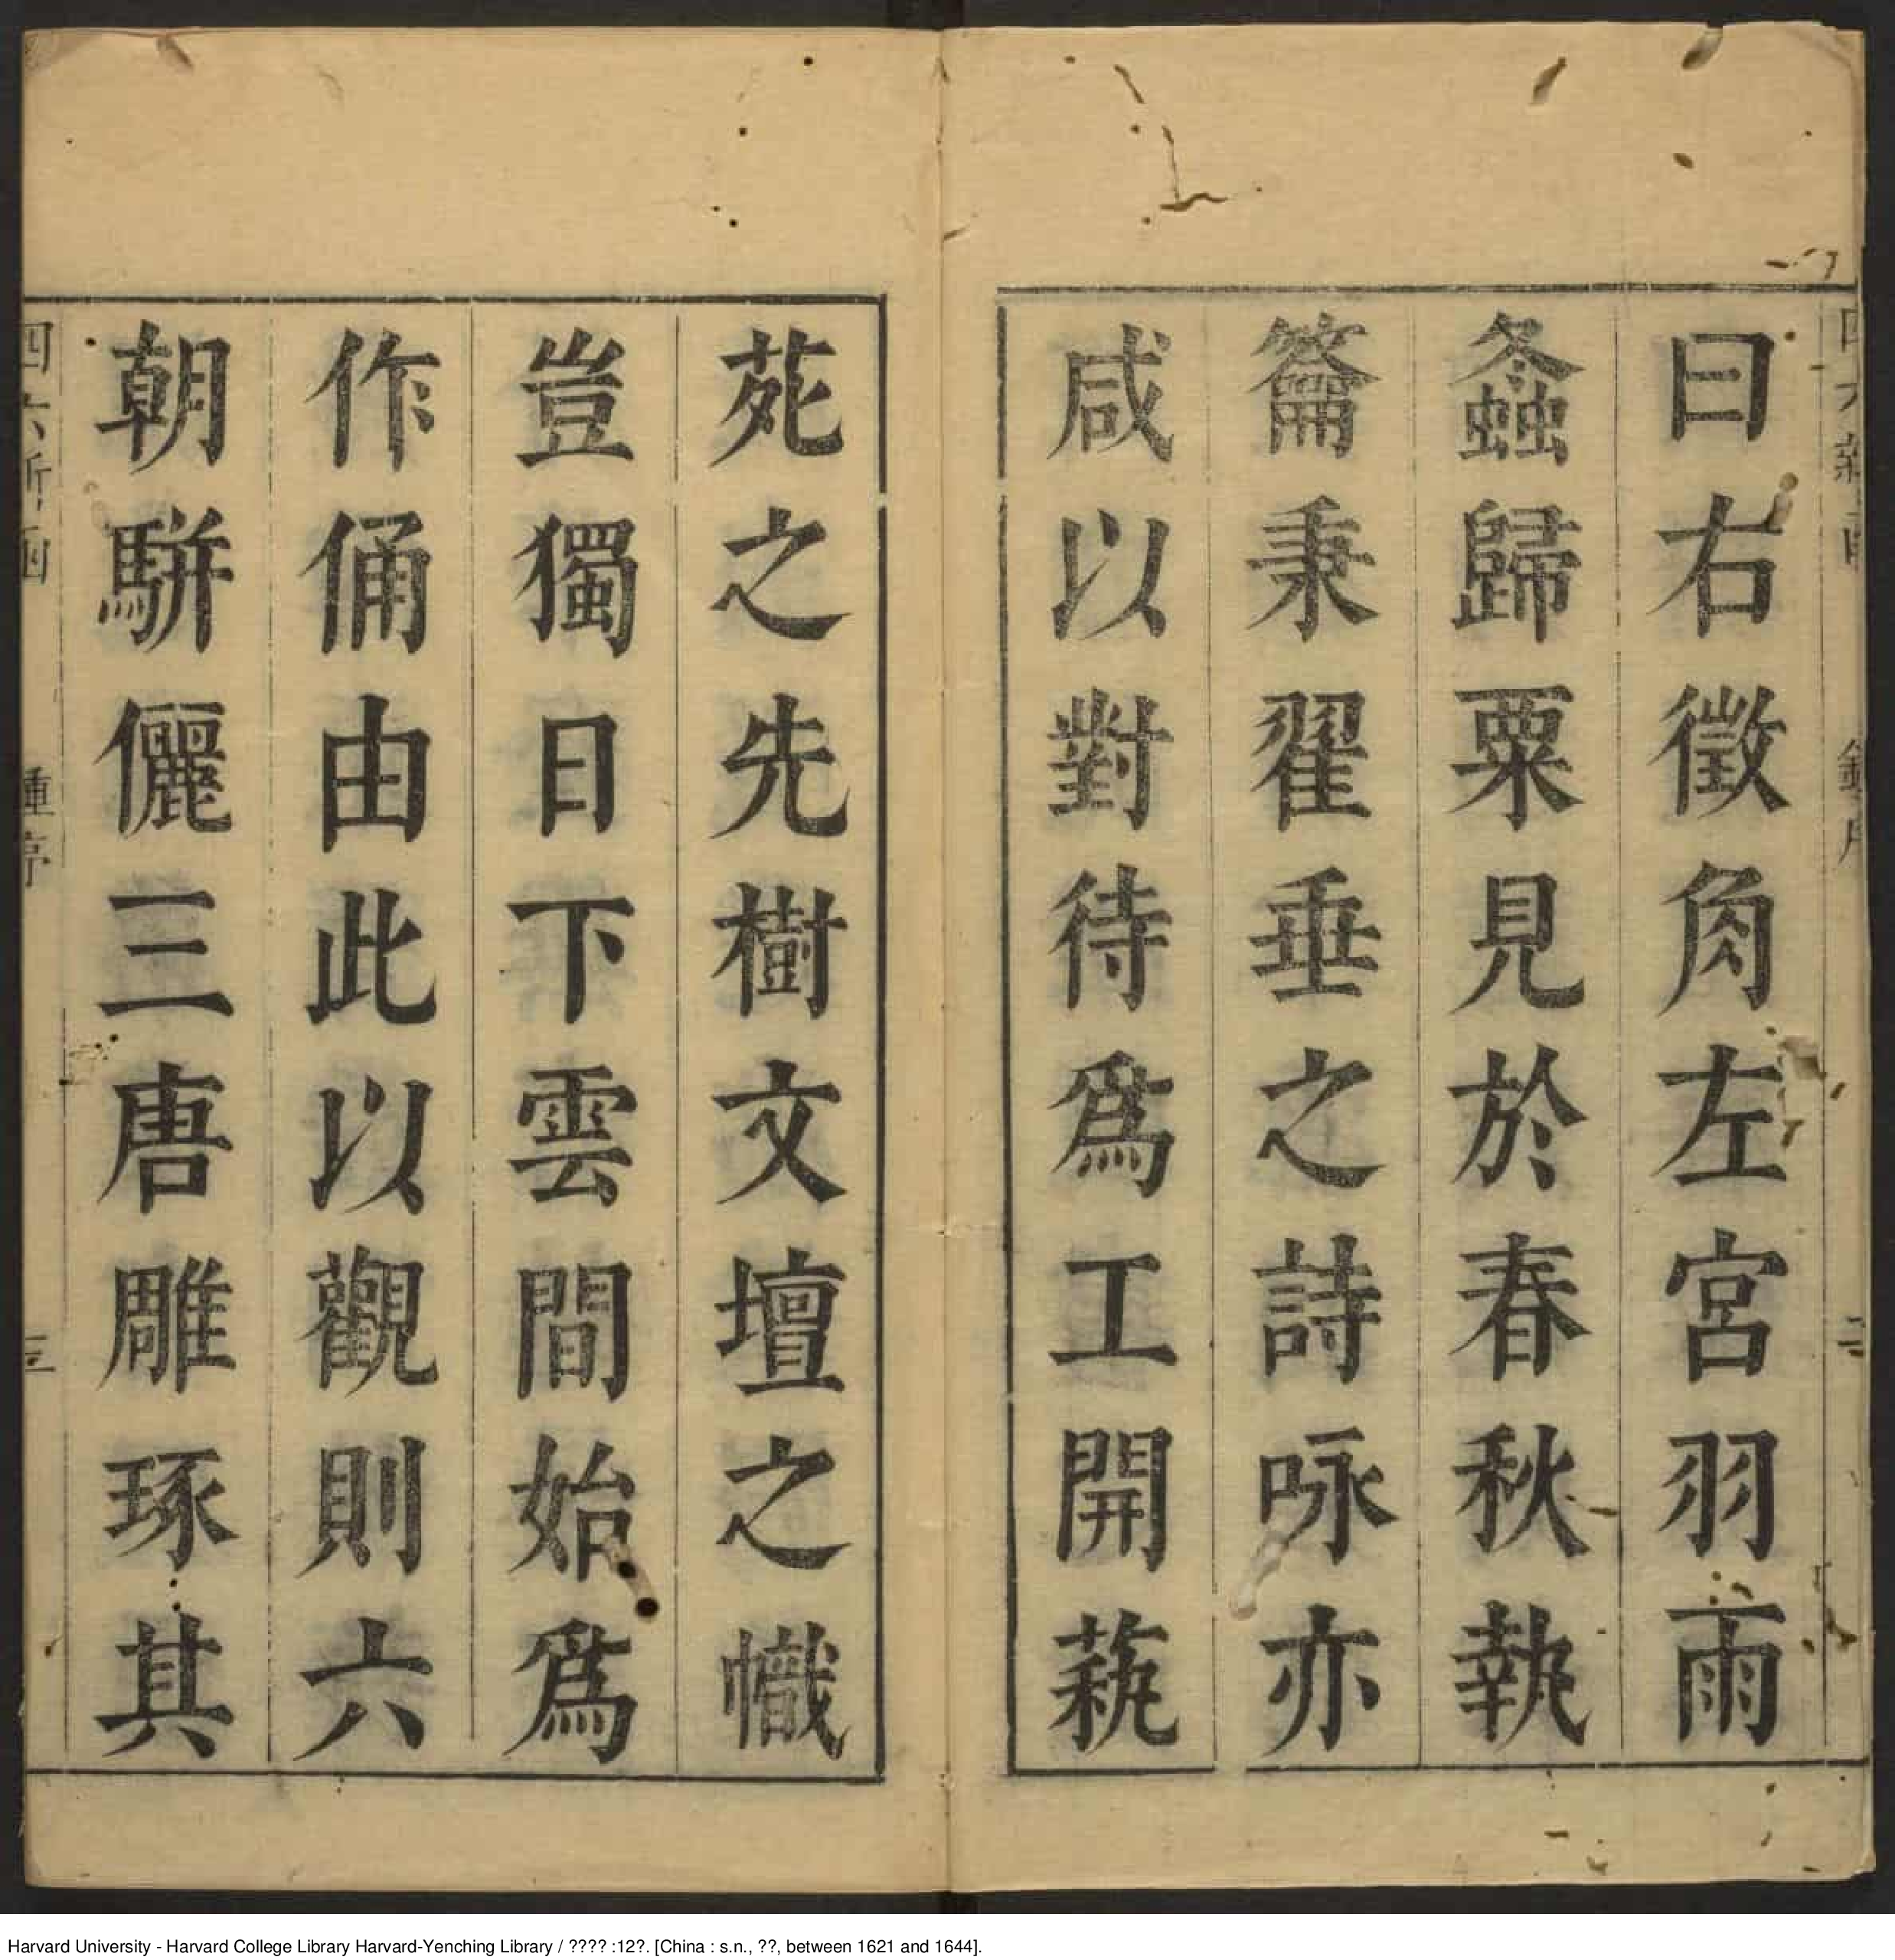 曰右徵角左宮羽雨
螽歸粟見於春秋執
籥秉翟垂之詩咏亦
咸以對待爲工開蓺
苑之先樹文壇之幟
豈獨日下雲間始爲
作俑由此以觀則六
朝駢儷三唐雕琢其
四六新函
鍾序
三
Harvard University - Harvard College Library Harvard-Yenching Library / ???? :12?. [China : s.n., ??, between 1621 and 1644].